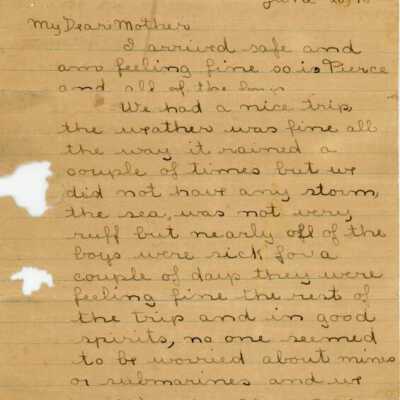 June
My Dear Mother
I arrived safe and
am feeling fine so is Pierce
and all of the boys
We had a nice trip
the weather was fine all
the way it rained a
couple of times but we
did not have any storm,
the sea, was not very
ruff but nearly all of the
boys were sick for a
couple of days they were
feeling fine the rest of
the trip and in good
spirits, no one seemed
to be worried about mines
or submarines and we